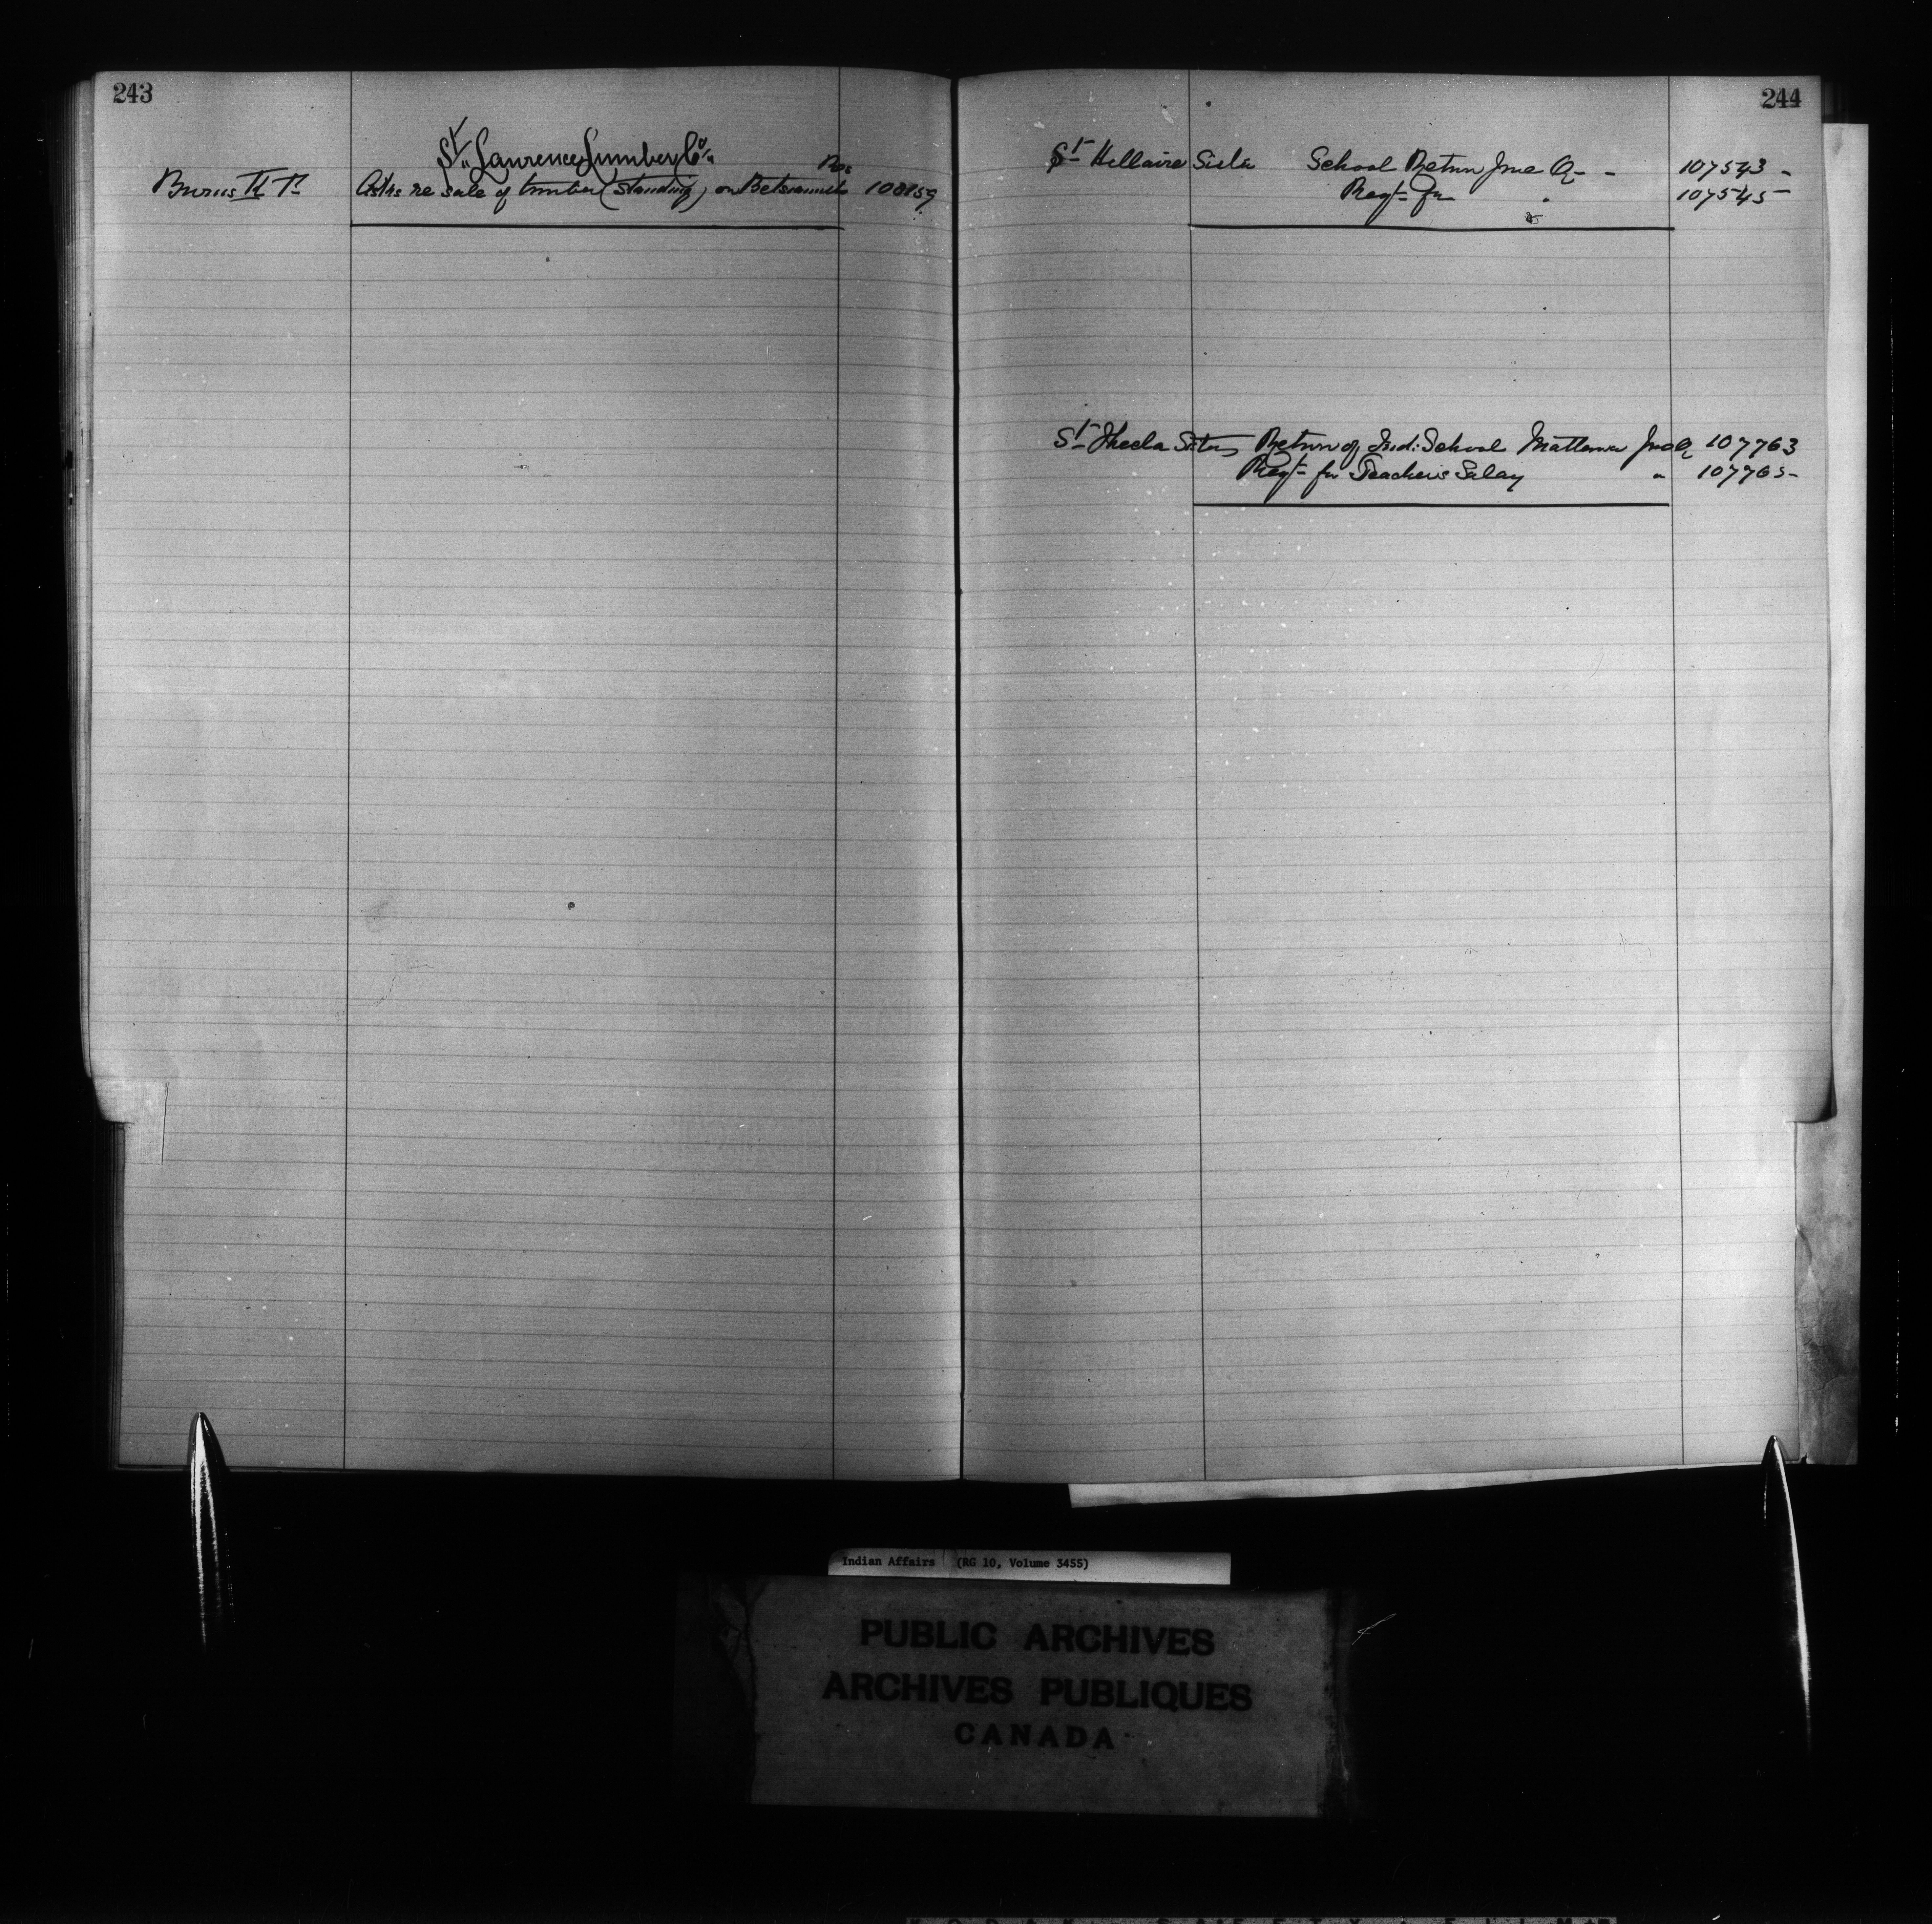 243
St. Lawrence Lumber Co.
Res
Burns K. P. Asks re sale of timber (standing) on Betsiamits 108159
244
St Hellaire Sister School Return June Qr - - 107543 -
Reqt for " 107545 -
St Thecla Sister Return of Ind: School Mattawa June Qr 107763
Reqt for Teachers Salary " 107765 -
Indian Affairs (RG 10, Volume 3455)
PUBLIC ARCHIVES
ARCHIVES PUBLIQUES
CANADA